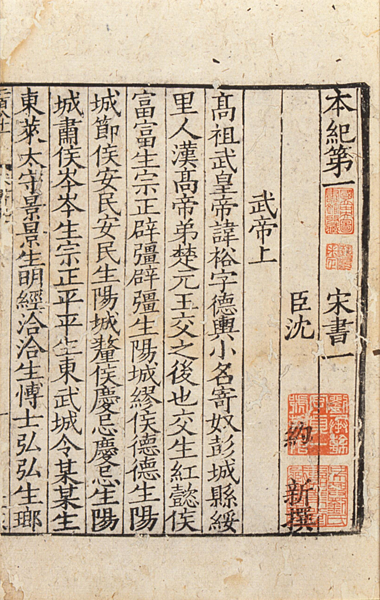 本紀第一 宋書一
臣沈 約 新撰
武帝上
髙祖武皇帝諱裕字德輿小名寄奴彭城縣綏
里人漢髙帝弟楚元王交之後也交生紅懿侯
富富生宗正辟彊辟彊生陽城繆侯德德生陽
城節侯安民安民生陽城釐侯慶忌慶忌生陽
城肅侯岑岑生宗正平平生東武城令某某生
東萊太守景景生明經洽洽生博士弘弘生瑯